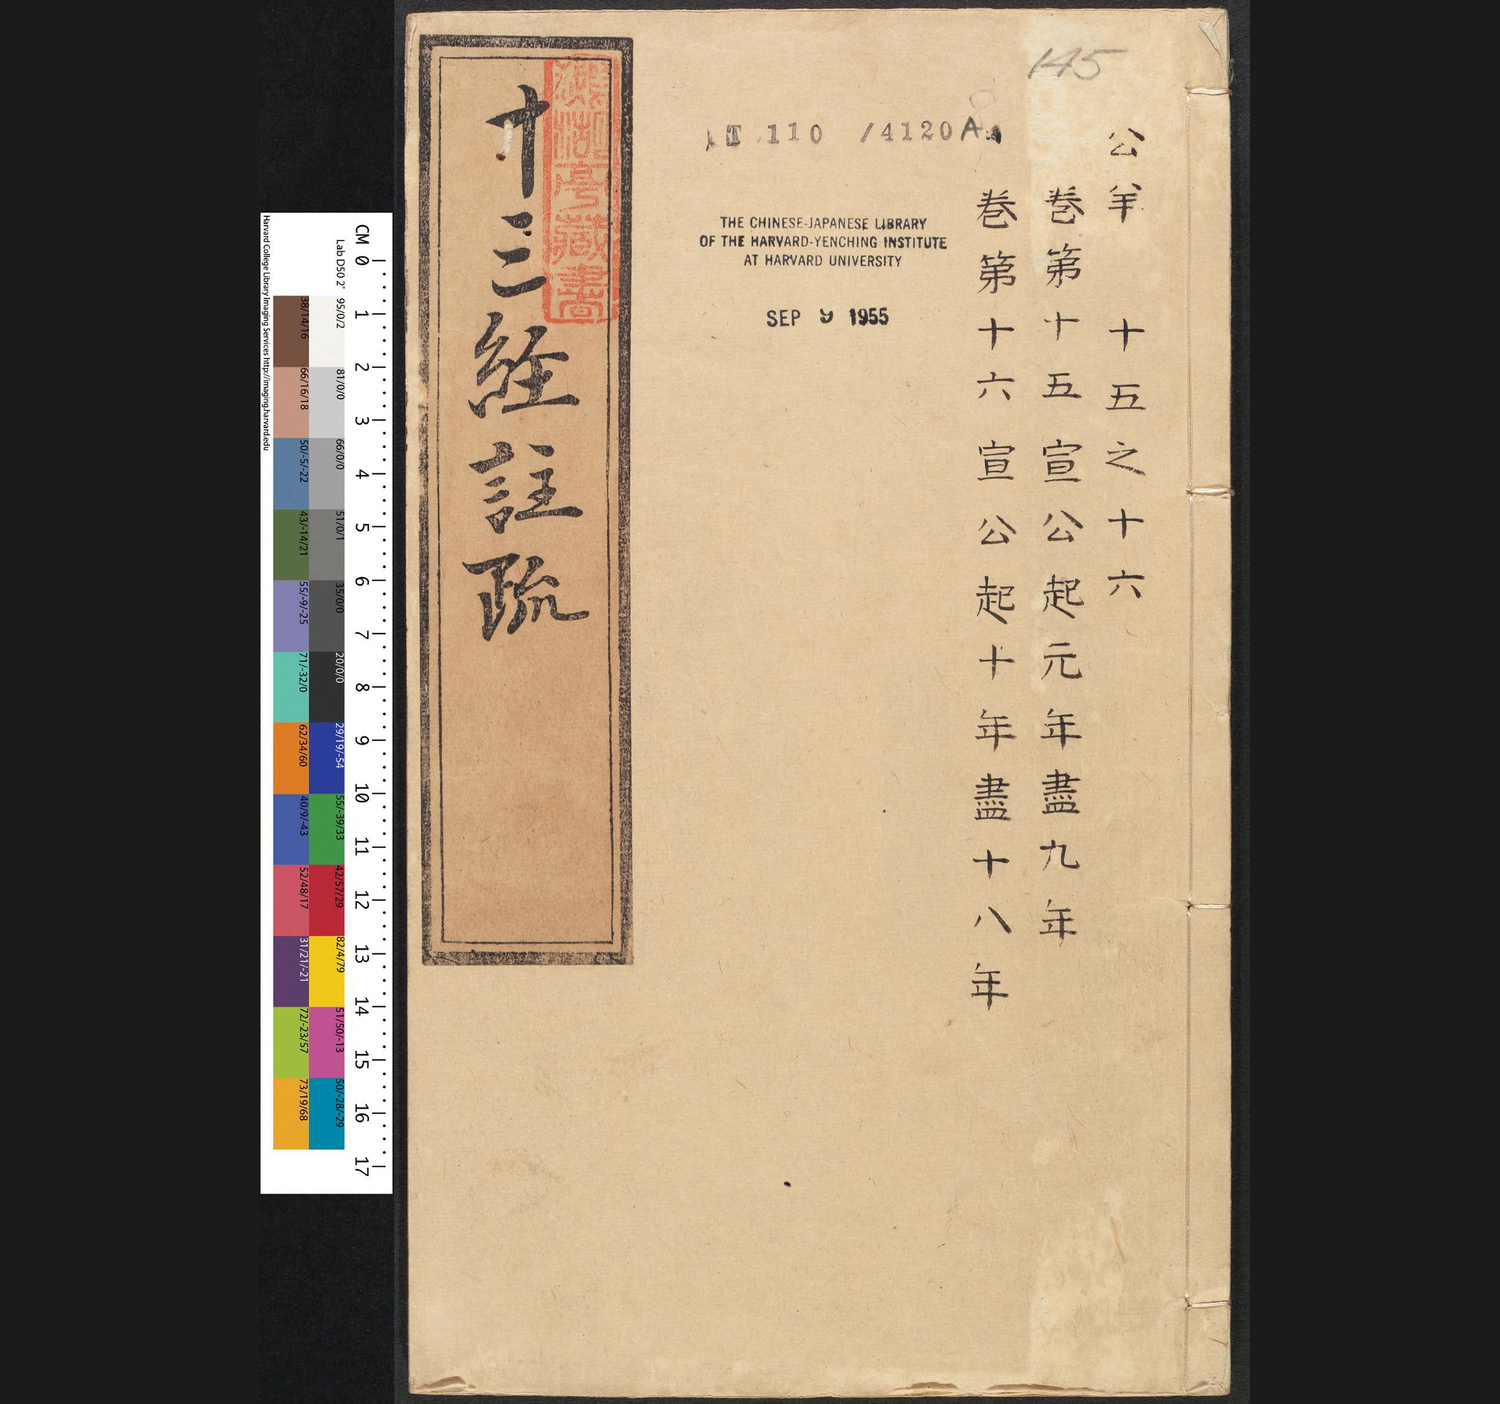 145
公羊 十五之十六
卷第十五宣公起元年盡九年
卷第十六宣公起十年盡十八年
T 110 /4120A
THE CHINESE-JAPANESE LIBRARY
OF THE HARVARD-YENCHING INSTITUTE
AT HARVARD UNIVERSITY
SEP 9 1955
十三經註疏
亭藏書
CM 0 1 2 3 4 5 6 7 8 9 10 11 12 13 14 15 16 17
Lab D50 2° 95/0/2 81/0/0 66/0/0 51/0/1 35/0/0 20/0/0 29/19/-54 55/-39/33 42/57/29 82/4/79 51/50/-13 50/-28/-29
38/14/16 66/16/18 50/-5/-22 43/-14/21 55/-9/-25 71/-32/0 62/34/60 40/9/-43 52/48/17 31/21/-21 72/-23/57 73/19/68
Harvard College Library Imaging Services http://imaging.harvard.edu